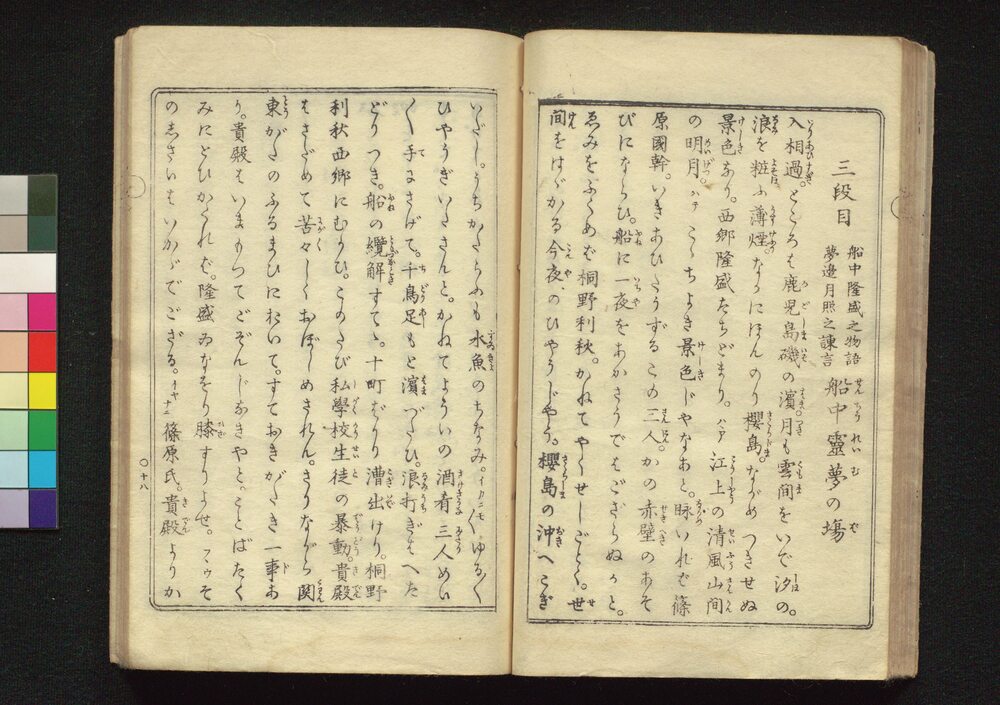 三段目
船中隆盛之物語
夢邊月照之諫言
船中靈夢の場
入相過。ところは鹿児島磯の濱。月も雲間をいで汐の。
浪を粧ふ薄煙。なかにほんのり櫻島。ながめつきせぬ
景色なり。西郷隆盛たちどまり。ハア江上の清風山間
の明月。ハテこゝちよき景色じやなあと。眺いれば篠
原國幹。いきあひたうずるこの三人。かの赤壁のあそ
びにならひ。船に一夜をあかさうではござらぬかと。
ゑみをふくめば桐野利秋。かねてやくせしごとく。世
間をはゞかる今夜のひやうじやう。櫻島の沖へこぎ
いだし。うちかたらふも水魚のちなみ。イカニモ〱ゆる〱
ひやうぎいたさんと。かねてよういの酒肴三人めい
〱手にさげて。千鳥足もと濱づたひ。浪打ぎはへた
どりつき。船の纜解すてゝ。十町ばかり漕出けり。桐野
利秋西郷にむかひ。このたび私學校生徒の暴動。貴殿
はさだめて苦々しくおぼしめされん。さりながら関
東がたのふるまひにおいて。すておきがたき一事あ
り。貴殿はいまもつてごぞんじなきやと。ことばたく
みにとひかくれば。隆盛ゐなをり膝すりよせ。フウそ
のしさいはいかゞでござる。イヤナニ篠原氏。貴殿よりか
〇十八